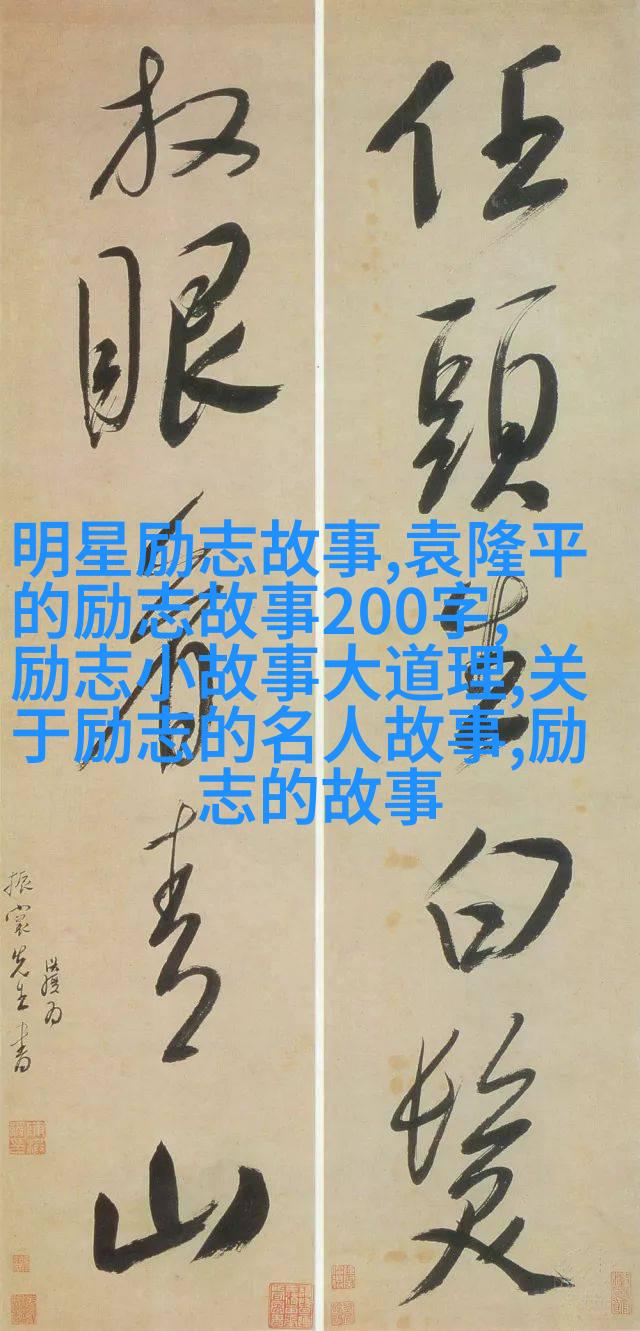 任頭生白髮
放眼看青山
先生書
明星励志故事,袁隆平
的励志故事200字,
励志小故事大道理,关
于励志的名人故事,励
志的故事